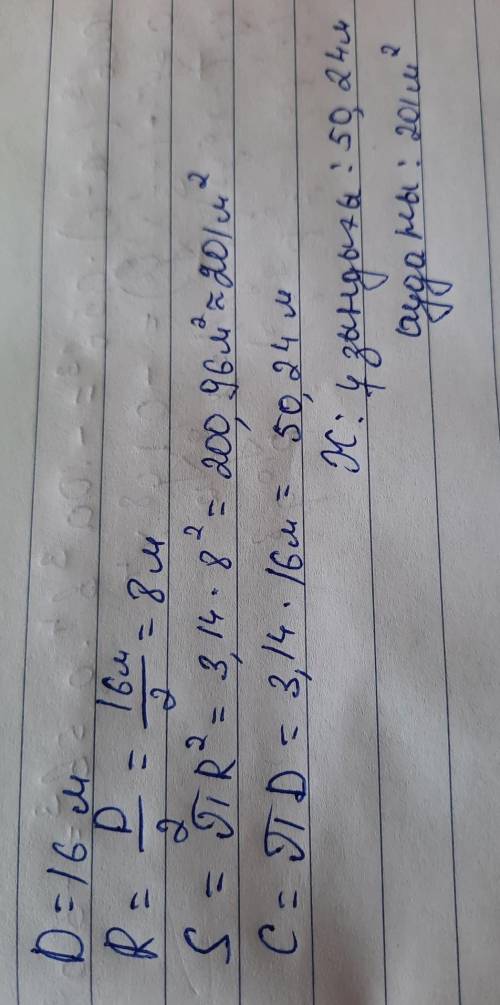 D = 16 м
R = D/2 = 16м/2 = 8 м
S = πR² = 3,14 · 8² = 200,96м² ≈ 201м²
C = πD = 3,14 · 16м = 50,24 м
Ж: ұзындығы: 50,24м
ауданы: 201м²